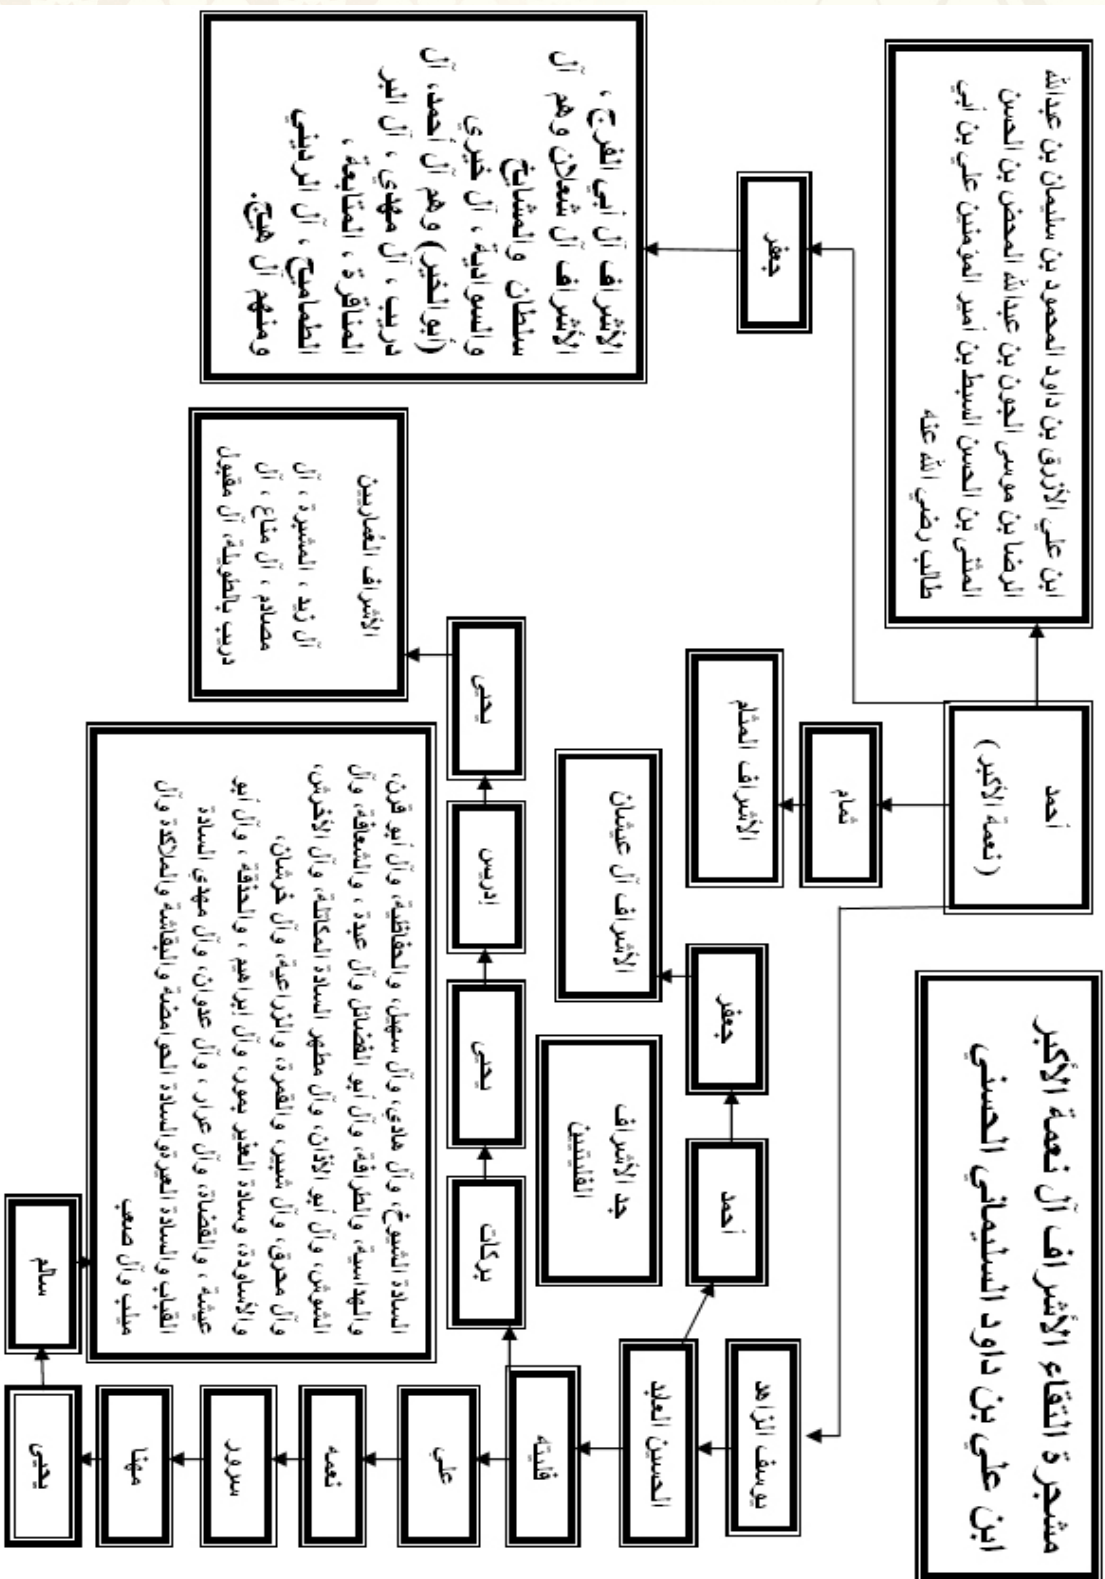 مشجرة التقاء الأشراف آل نعمة الأكبر
ابن علي بن داود السليماني الحسني
ابن علي الأزرق بن داود المحمود بن سليمان بن عبدالله
الرضا بن موسى الجون بن عبدالله المحض بن الحسن
المثنى بن الحسن السبط بن أمير المؤمنين علي بن أبي
طالب رضي الله عنه
أحمد
(نعمة الأكبر)
يوسف الزاهد
ثمام
جعفر
الأشراف المثام
الأشراف آل أبي الفرج ،
الأشراف آل شعلان وهم آل
سلطان والمشايخ
والسوادية ، آل خيري
(أبوالخير) وهم آل أحمد، آل
دريب ، آل مهدي ، آل البر
المناقرة ، المتابعة ،
الطماميح ، آل الرديني
ومنهم آل هيج.
الحسين العابد
أحمد
جعفر
الأشراف آل عيشان
جد الأشراف
الفليتيين
فليته
بركات
يحيى
إدريس
يحيى
الأشراف العُماريين
آل زيد ، المشيرة ، آل
مصادم ، آل مناع ، آل
دريب بالطويلة، آل مقبول
علي
نعمه
سرور
مهنا
يحيى
سالم
السادة الشيوخ، وآل هادي، وآل سهيل، والحفاظية، وآل أبو قرن،
والهداسية، والطرافة، وآل أبو الفضائل وآل عبدة ، والشعافة، وآل
الشوش، وآل أبو الأذان، وآل مطهر السادة المكاتلة، وآل الأخرش،
وآل محرق، وآل شبير، والقمرة، والزراعية، وآل خرشان،
والأساودة، وسادة الغدير بمور، وآل ابراهيم ، والحذقة ، وآل أبو
عيشة ، والقضاة، وآل عرار ، وآل عدوان، وآل مهدي السادة
القباب والسادة العبرة والسادة الحوامضة والبقاشة والملاكدة وآل
ميلب وآل صعب